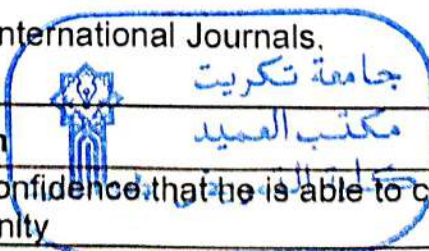 nternational Journals.
جامعة تكريت
مكتب العميد
onfidence that he is able to c
nity